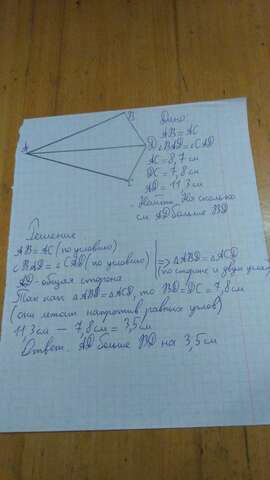 B
A
D
C
Дано:
AB=AC
∠BAD=∠CAD
AC=8,7см
DC=7,8см
AD=11,3см
Найти: На сколько
см AD больше BD
Решение
AB=AC (по условию)
∠BAD=∠CAD (по условию)
AD-общая сторона
⟹ △ABD=△ACD
(по стороне и двум углам)
Так как △ABD=△ACD, то BD=DC=7,8см
(они лежат напротив равных углов)
11,3см — 7,8см = 3,5см
Ответ: AD больше BD на 3,5см